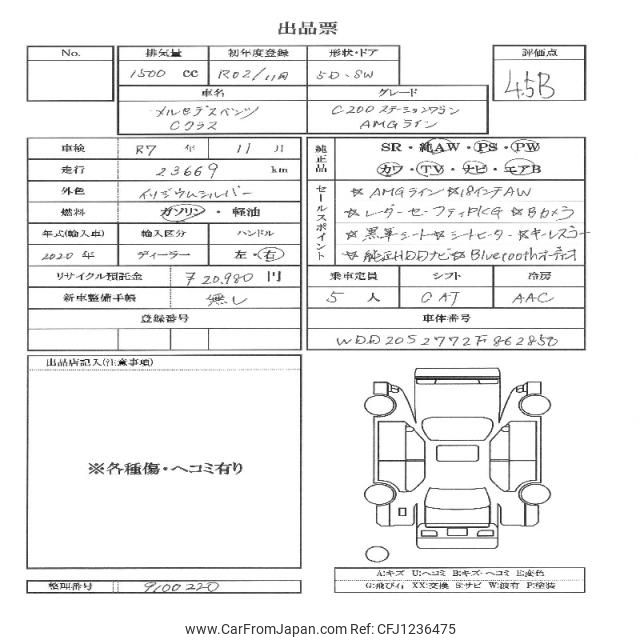 出品票
No. 排気量 初年度登録 形状・ドア 評価点
1500 cc R02/11月 5D.SW 4.5B
車名 グレード
メルセデスベンツ C200ステーションワゴン
Cクラス AMGライン
車検 R7 年 11 月 純正品 SR・純AW・PS・PW
走行 23669 km カワ・TV・ナビ・エアB
外色 イリジウムシルバー セールスポイント ☆AMGライン☆18インチAW
燃料 ガソリン・軽油 ☆レーダーセーフティPKG ☆Bカメラ
年式(輸入車) 輸入区分 ハンドル ☆黒革シート☆シートヒーター☆キーレスゴー
2020年 ディーラー 左・右 ☆純正HDDナビ☆Bluetoothオーディオ
リサイクル預託金 ¥20,980 円 乗車定員 シフト 冷房
新車整備手帳 無し 5 人 CAT AAC
登録番号 車体番号
WDD2052772F862850
出品店記入(注意事項)
※各種傷・ヘコミ有り
A:キズ U:ヘコミ B:キズ・ヘコミ E:変色
G:飛び石 XX:交換 S:サビ W:波有 P:塗装
整理番号 9100220
www.CarFromJapan.com - REF: CFJ1236475